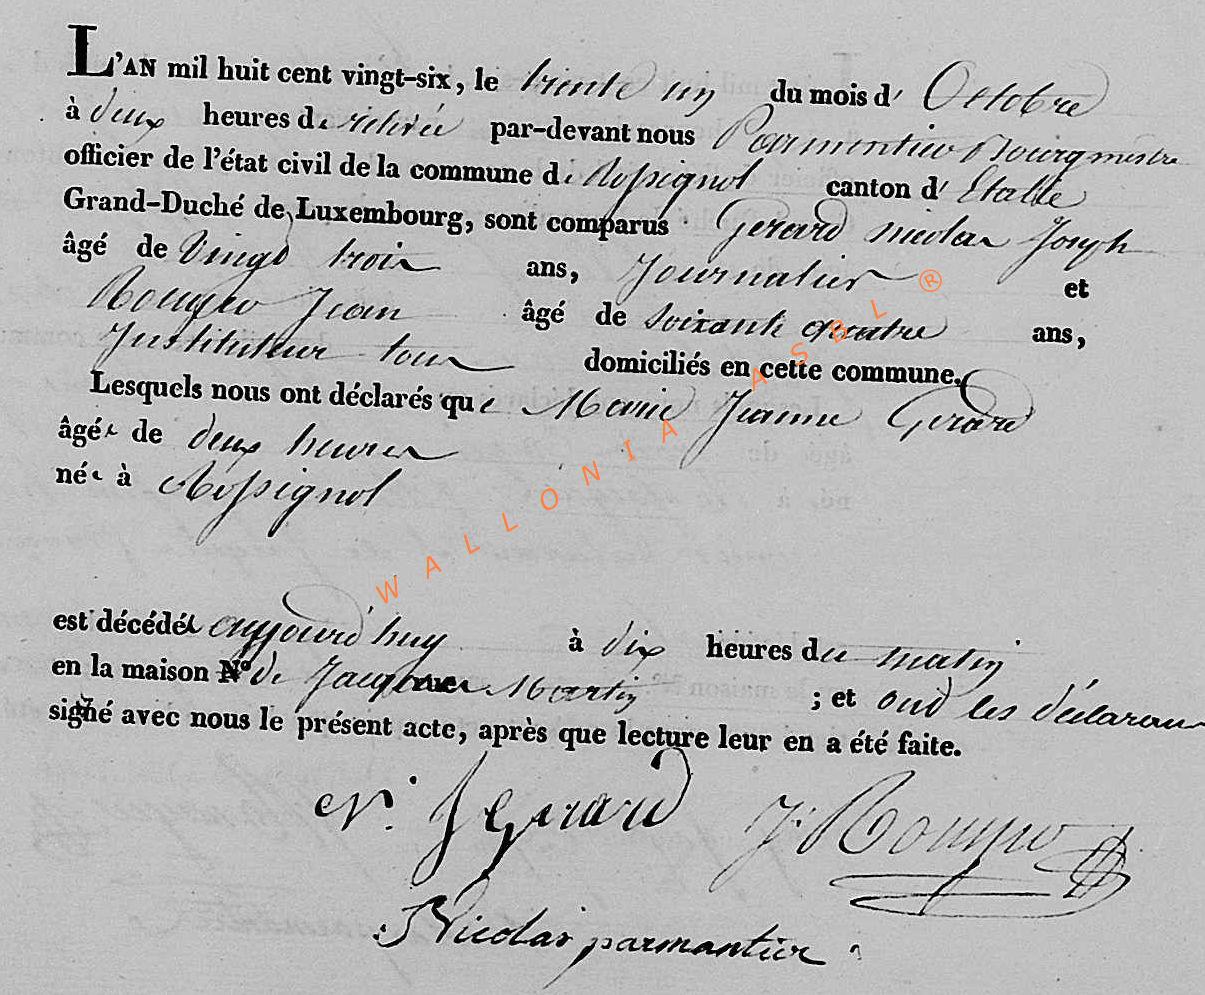 L'AN mil huit cent vingt-six, le trente un du mois d' Octobre
à deux heures de relevée par-devant nous Parmentier Bourgmestre
officier de l'état civil de la commune de Rossignol canton d' Etalle
Grand-Duché de Luxembourg, sont comparus Gerard nicolas Joseph
âgé de Vingt trois ans, Journalier et
Jean âgé de soixante quatre ans,
Instituteur tous domiciliés en cette commune,
Lesquels nous ont déclarés que Marie Jeanne Gerard
âgée de deux heures
née à Rossignol
est décédée aujourd'huy à dix heures du matin
en la maison No de Martin ; et ont les déclarans
signé avec nous le présent acte, après que lecture leur en a été faite.
N. J Gerard J.
Nicolas parmantier
WALLONIA ASBL ®